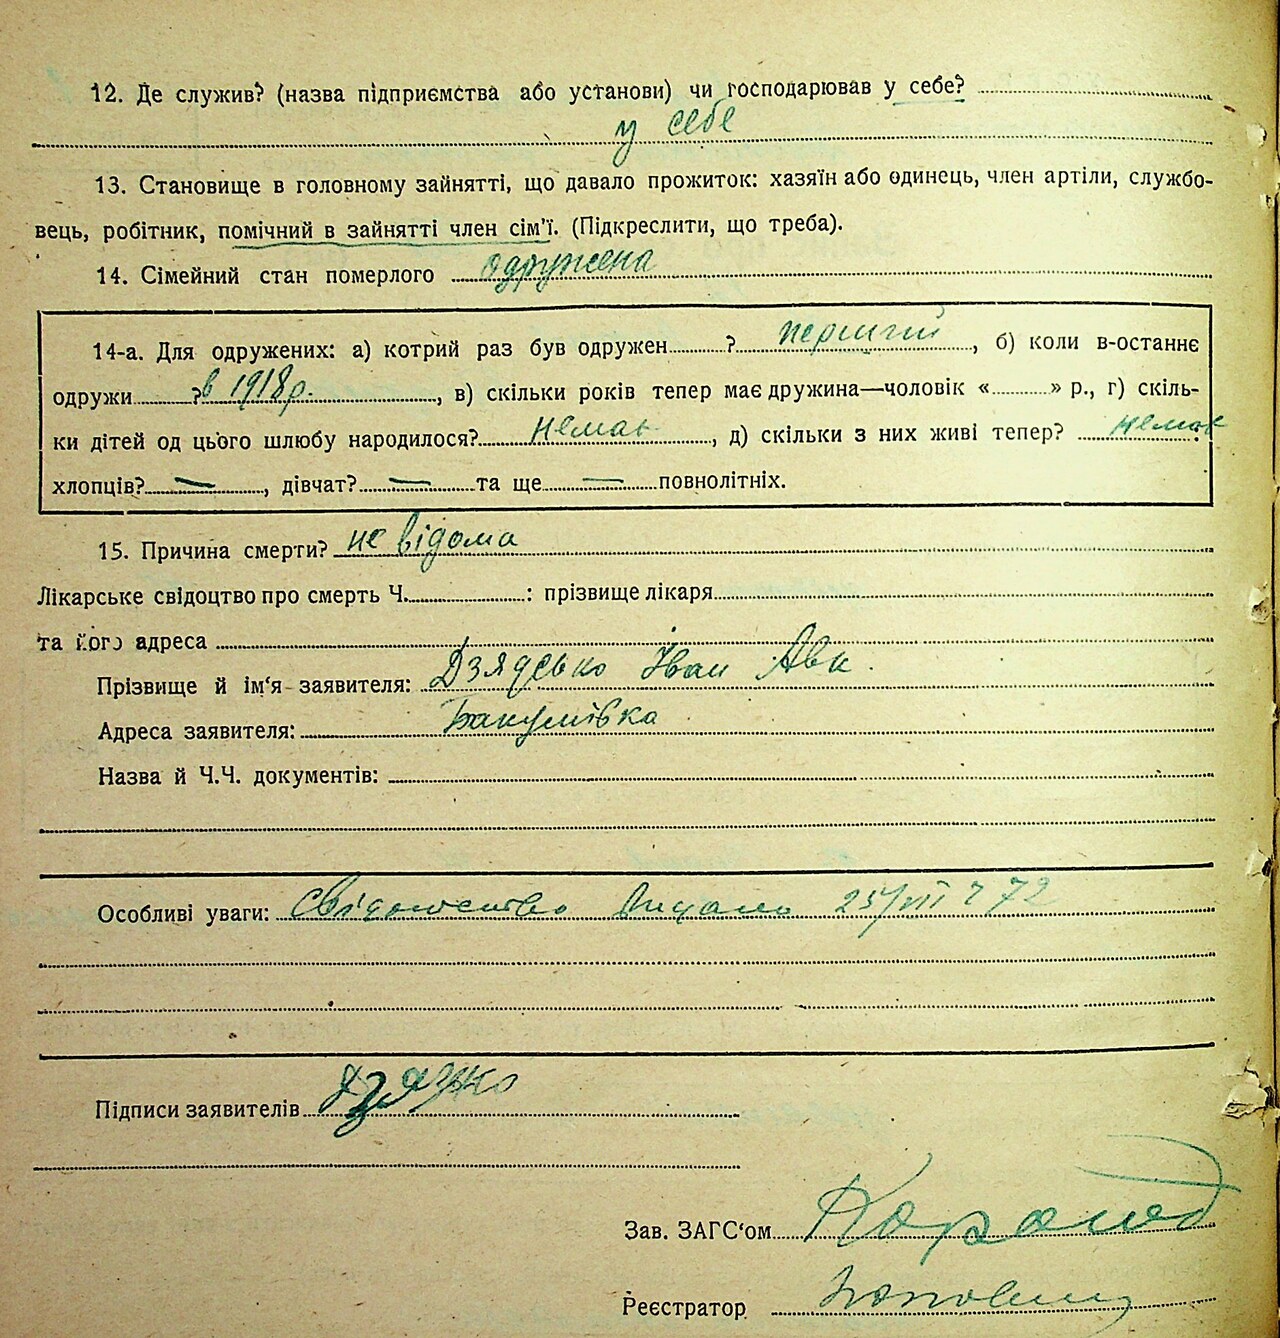 12. Де служив? (назва підприємства або установи) чи господарював у себе?
у себе
13. Становище в головному зайнятті, що давало прожиток: хазяїн або одинець, член артіли, службо-
вець, робітник, помічний в зайнятті член сім'ї. (Підкреслити, що треба).
14. Сімейний стан померлого одружена
14-а. Для одружених: а) котрий раз був одружен ? перший, б) коли в-останнє
одружи ? в 1918 р., в) скільки років тепер має дружина—чоловік « » р., г) скіль-
ки дітей од цього шлюбу народилося? немає, д) скільки з них живі тепер? немає
хлопців? —, дівчат? — та ще — повнолітніх.
15. Причина смерти? не відома
Лікарське свідоцтво про смерть Ч. : прізвище лікаря
та його адреса
Прізвище й ім'я заявителя: Дзядсько Іван Авк.
Адреса заявителя: Бакумівка
Назва й Ч.Ч. документів:
Особливі уваги: Свідоцтво видано 25/VII 72
Підписи заявителів
Зав. ЗАГС'ом
Реєстратор